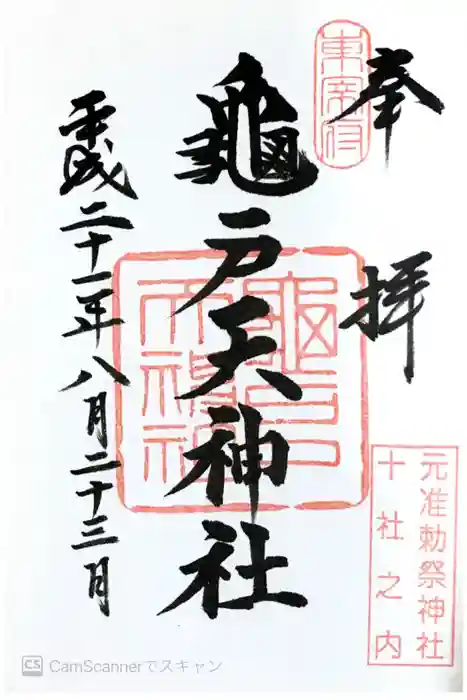 奉拝
東宰府
龜戸天神社
龜戸天神社
平成二十一年八月二十三日
元准勅祭神社
十社之内
CS CamScannerでスキャン